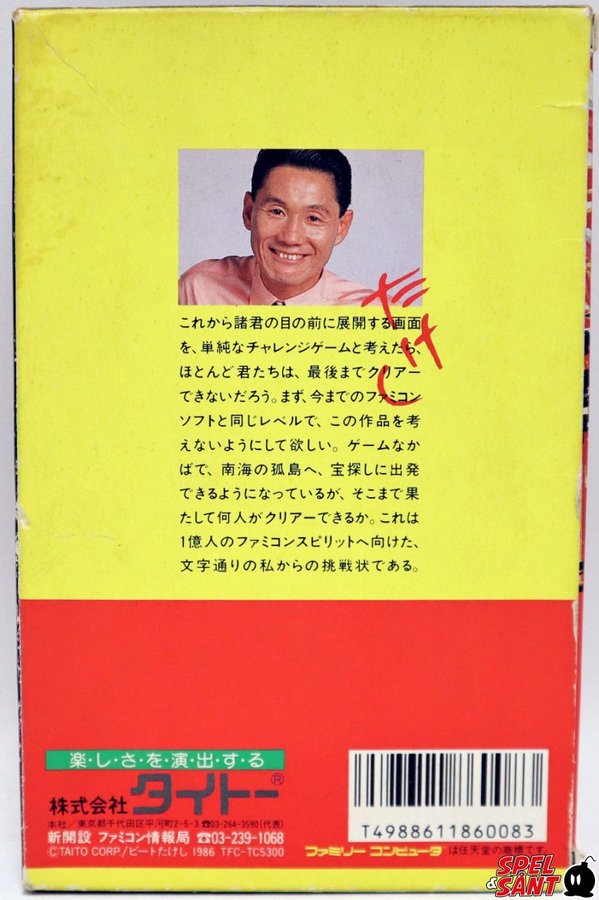 たけし
これから諸君の目の前に展開する画面
を、単純なチャレンジゲームと考えたら、
ほとんど君たちは、最後までクリアー
できないだろう。まず、今までのファミコン
ソフトと同じレベルで、この作品を考
えないようにして欲しい。ゲームなか
ばで、南海の孤島へ、宝探しに出発
できるようになっているが、そこまで果
たして何人がクリアーできるか。これは
1億人のファミコンスピリットへ向けた、
文字通りの私からの挑戦状である。
楽・し・さ・を・演・出・す・る
株式会社 タイトー®
本社/東京都千代田区平河町2-5-3 ☎03-264-3590(代表)
新開設 ファミコン情報局 ☎03-239-1068
©TAITO CORP./ビートたけし 1986 TFC-TC5300
T4988611860083
ファミリーコンピュータは任天堂の商標です。
SPEL
& SÅNT